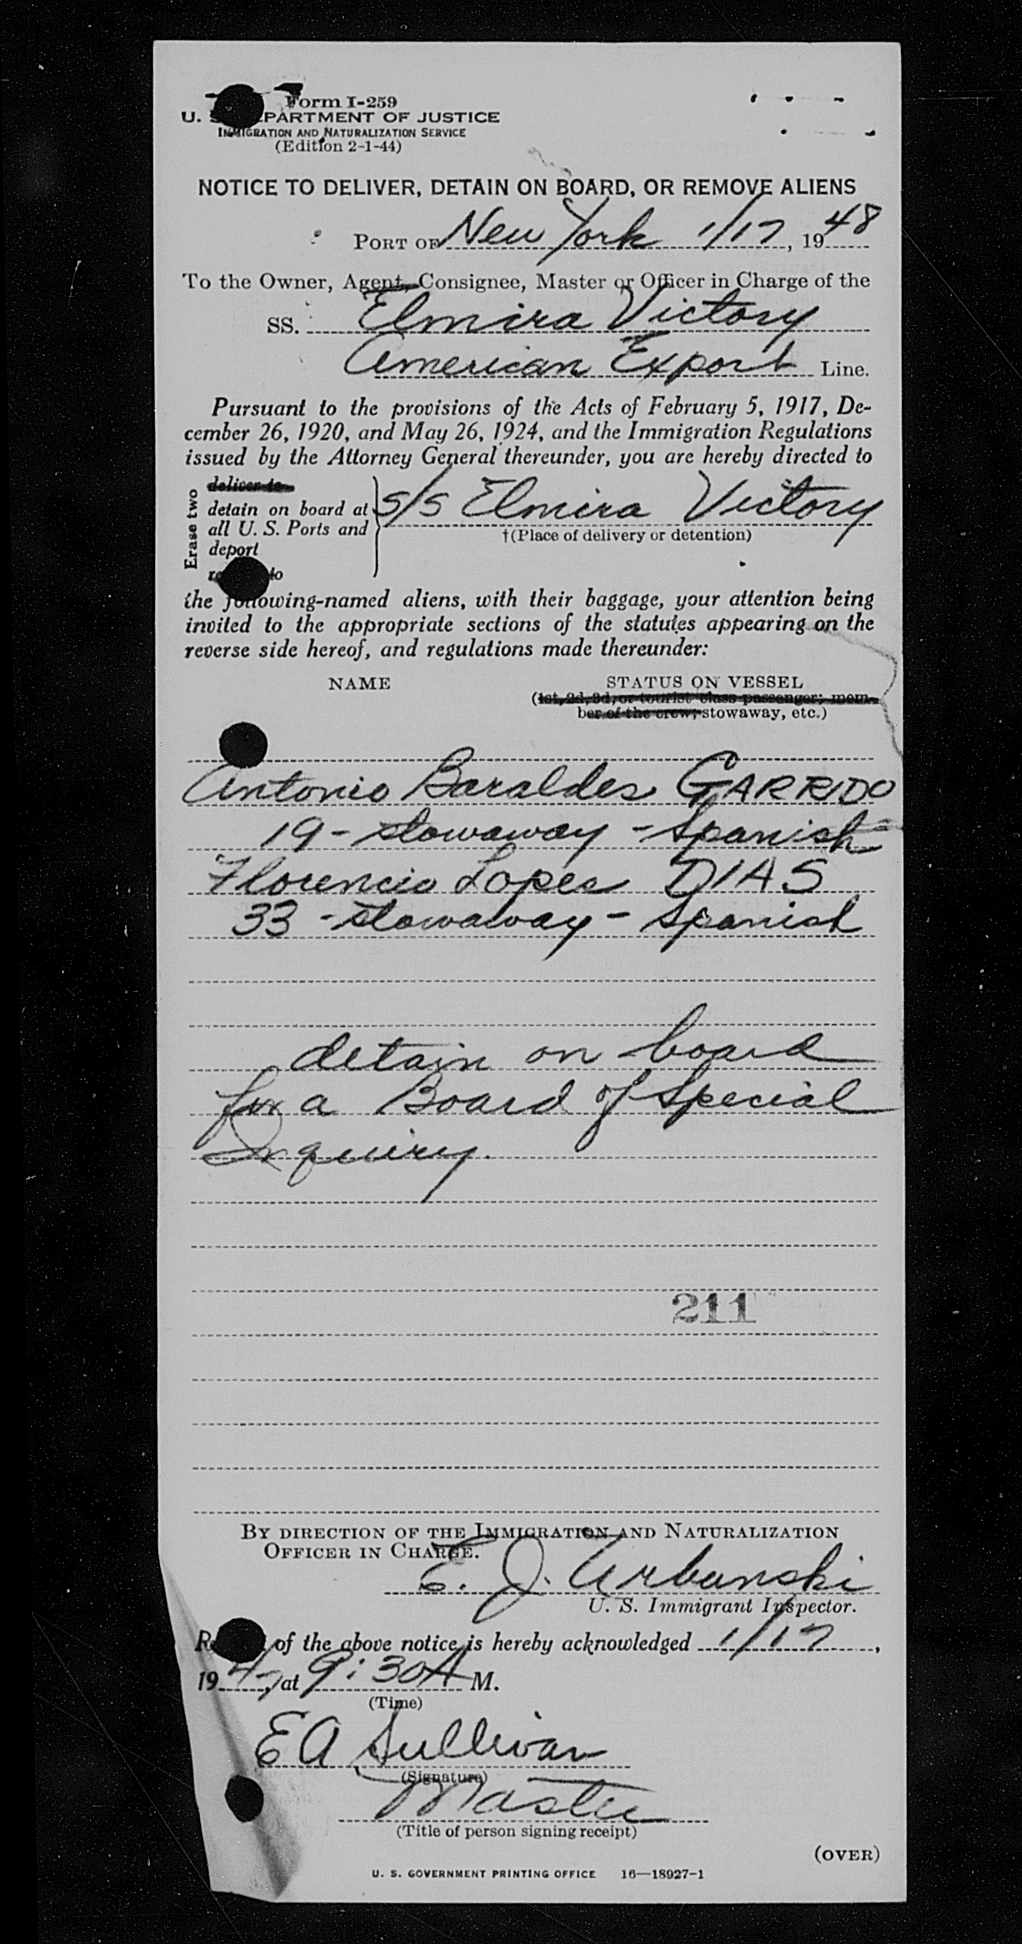 Form I-259
U. S. DEPARTMENT OF JUSTICE
IMMIGRATION AND NATURALIZATION SERVICE
(Edition 2-1-44)
NOTICE TO DELIVER, DETAIN ON BOARD, OR REMOVE ALIENS
PORT OF New York 1/17, 1948
To the Owner, Agent, Consignee, Master or Officer in Charge of the
SS. Elmira Victory
American Export Line.
Pursuant to the provisions of the Acts of February 5, 1917, De-
cember 26, 1920, and May 26, 1924, and the Immigration Regulations
issued by the Attorney General thereunder, you are hereby directed to
Erase two
deliver to
detain on board at
all U. S. Ports and
deport
s/s Elmira Victory
†(Place of delivery or detention)
the following-named aliens, with their baggage, your attention being
invited to the appropriate sections of the statutes appearing on the
reverse side hereof, and regulations made thereunder:
NAME STATUS ON VESSEL
(1st, 2d, 3d, or tourist class passenger; mem-
ber of the crew; stowaway, etc.)
Antonio Baraldes GARRIDO
19 - stowaway - Spanish
Florencio Lopes DIAS
33 - stowaway - Spanish
detain on board
for a Board of Special
Inquiry.
211
BY DIRECTION OF THE IMMIGRATION AND NATURALIZATION
OFFICER IN CHARGE.
E. J. Urbanski
U. S. Immigrant Inspector.
of the above notice is hereby acknowledged 1/17,
1947, at 9:30 A M.
(Time)
E A Sullivan
(Signature)
Master
(Title of person signing receipt)
(OVER)
U. S. GOVERNMENT PRINTING OFFICE 16—18927-1